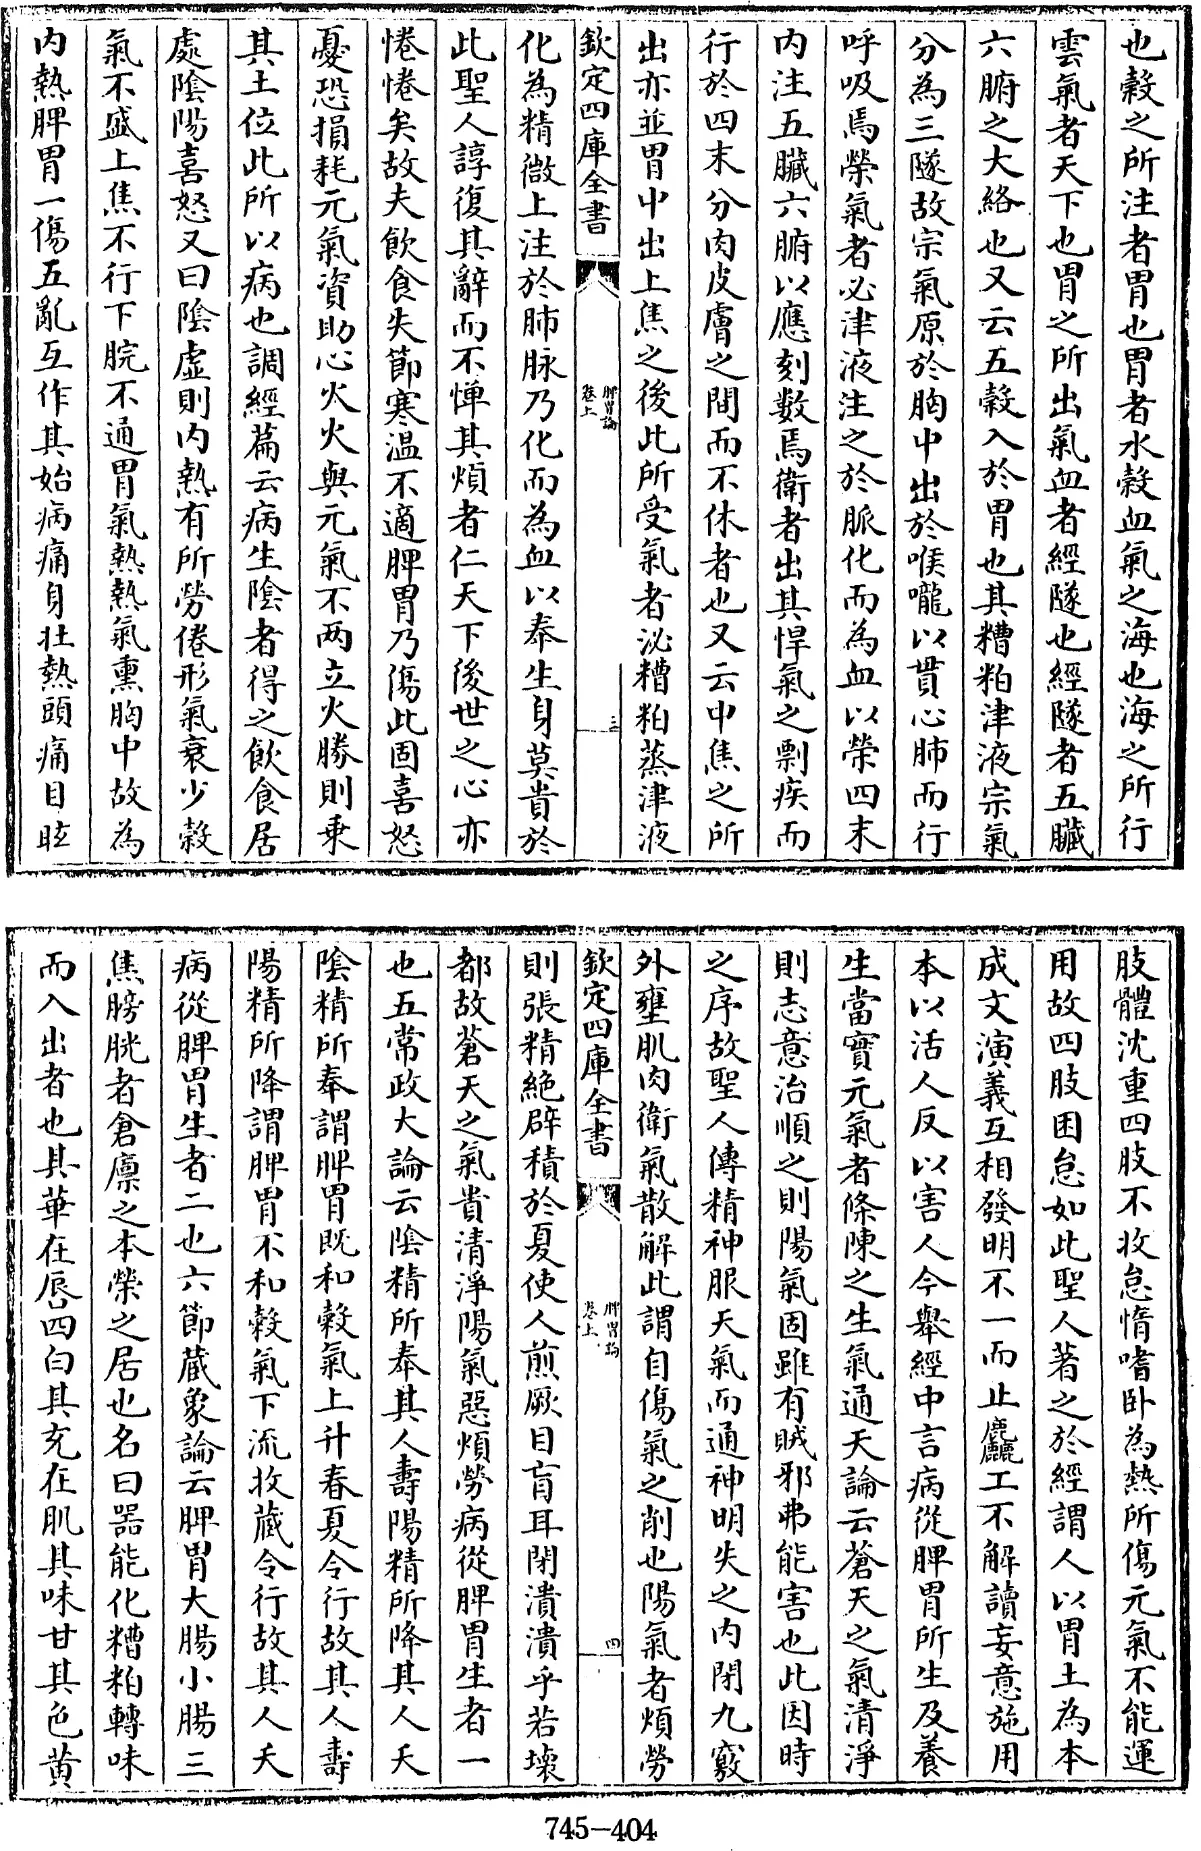 也穀之所注者胃也胃者水穀血氣之海也海之所行
雲氣者天下也胃之所出氣血者經隧也經隧者五臟
六腑之大絡也又云五穀入於胃也其糟粕津液宗氣
分為三隧故宗氣原於胸中出於喉嚨以貫心肺而行
呼吸焉榮氣者必津液注之於脈化而為血以榮四末
内注五臟六腑以應刻數焉衛者出其悍氣之剽疾而
行於四末分肉皮膚之間而不休者也又云中焦之所
出亦並胃中出上焦之後此所受氣者泌糟粕蒸津液
欽定四庫全書
脾胃論
卷上
三
化為精微上注於肺脉乃化而為血以奉生身莫貴於
此聖人諄復其辭而不憚其煩者仁天下後世之心亦
惓惓矣故夫飲食失節寒温不適脾胃乃傷此固喜怒
憂恐損耗元氣資助心火火與元氣不两立火勝則乗
其土位此所以病也調經篇云病生陰者得之飲食居
處陰陽喜怒又曰陰虚則内熱有所勞倦形氣衰少穀
氣不盛上焦不行下脘不通胃氣熱熱氣熏胸中故為
内熱脾胃一傷五亂互作其始病痛身壮熱頭痛目眩
肢體沈重四肢不收怠惰嗜卧為熱所傷元氣不能運
用故四肢困怠如此聖人著之於經謂人以胃土為本
成文演義互相發明不一而止麤工不解讀妄意施用
本以活人反以害人今舉經中言病從脾胃所生及養
生當實元氣者條陳之生氣通天論云蒼天之氣清淨
則志意治順之則陽氣固雖有賊邪弗能害也此因時
之序故聖人傳精神服天氣而通神明失之内閉九竅
外壅肌肉衛氣散解此謂自傷氣之削也陽氣者煩勞
欽定四庫全書
脾胃論
卷上
四
則張精絶辟積於夏使人煎厥目盲耳閉潰潰乎若壊
都故蒼天之氣貴清淨陽氣惡煩勞病從脾胃生者一
也五常政大論云陰精所奉其人壽陽精所降其人夭
陰精所奉謂脾胃既和穀氣上升春夏令行故其人壽
陽精所降謂脾胃不和穀氣下流收藏令行故其人夭
病從脾胃生者二也六節蔵象論云脾胃大腸小腸三
焦膀胱者倉廪之本榮之居也名曰器能化糟粕轉味
而入出者也其華在唇四白其充在肌其味甘其色黄
745-404